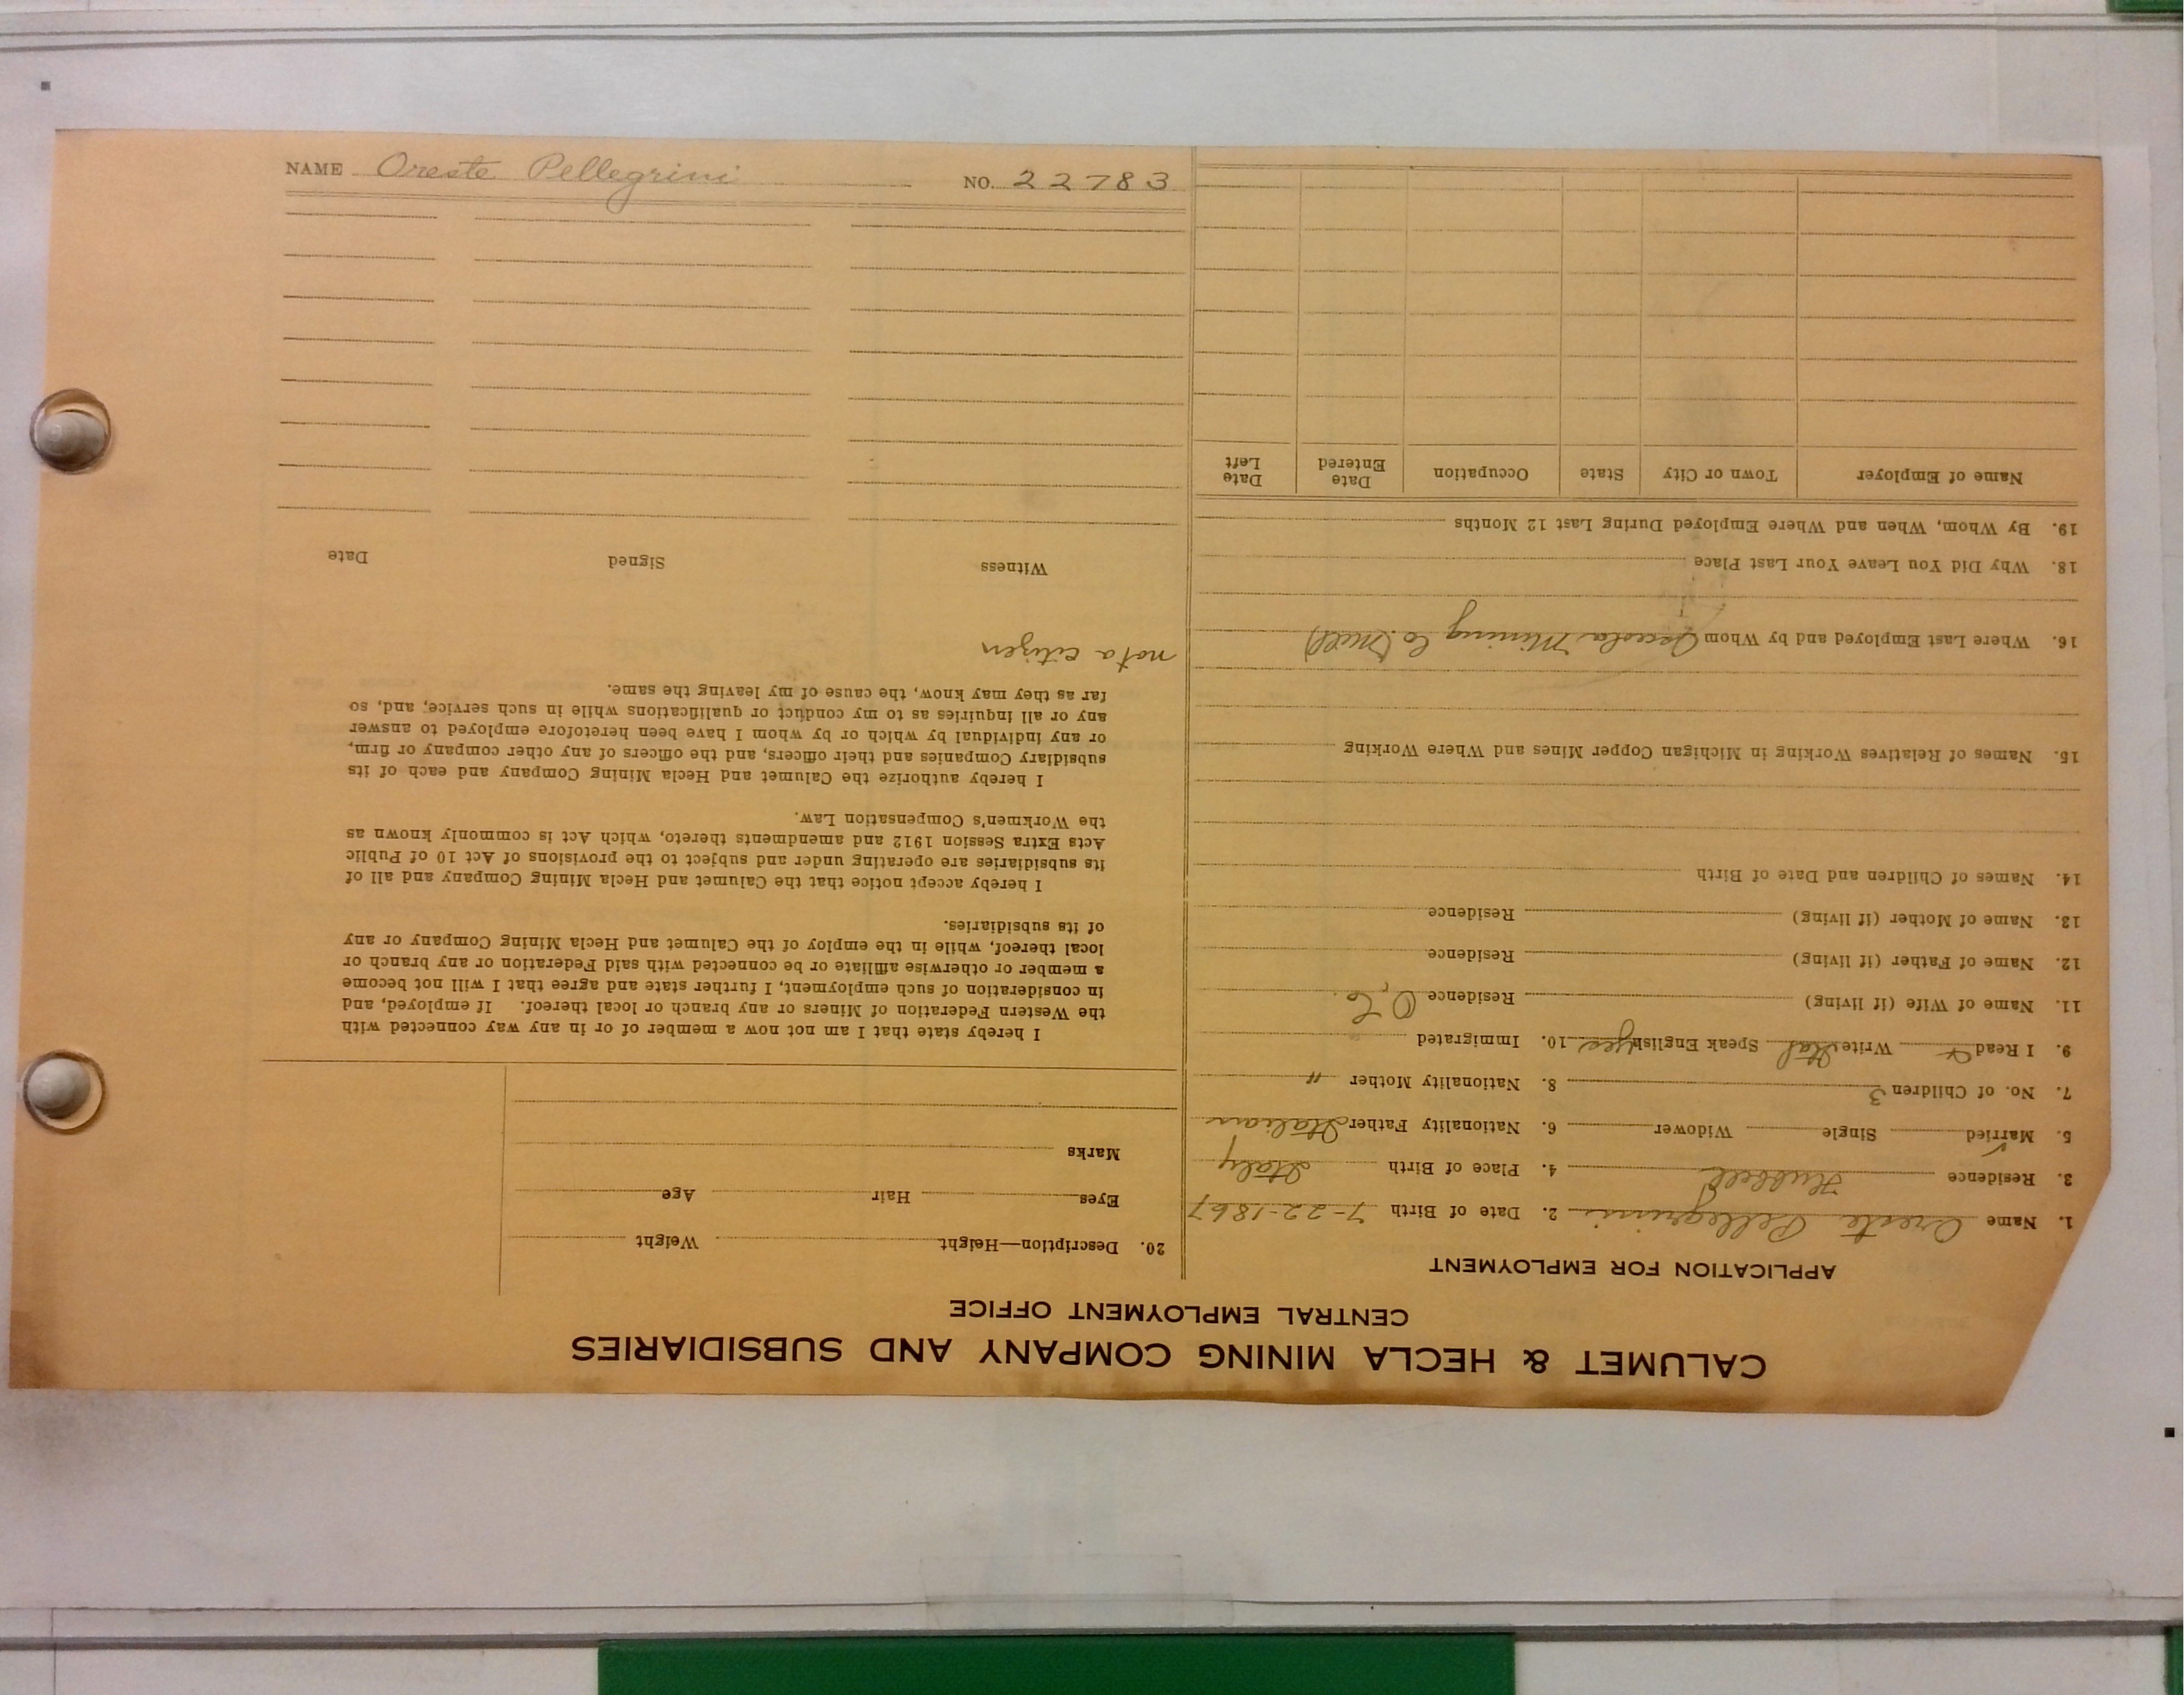 NAME Oreste Pellegrini NO. 22783
CALUMET & HECLA MINING COMPANY AND SUBSIDIARIES
CENTRAL EMPLOYMENT OFFICE
APPLICATION FOR EMPLOYMENT
1. Name Oreste Pellegrini 2. Date of Birth 7-22-1867
3. Residence Hubbell 4. Place of Birth Italy
5. Married ✓ Single Widower 6. Nationality Father Italian
7. No. of Children 3 8. Nationality Mother "
9. I Read & Write Ital Speak English yes 10. Immigrated
11. Name of Wife (if living) Residence O.C.
12. Name of Father (if living) Residence
13. Name of Mother (if living) Residence
14. Names of Children and Date of Birth
15. Names of Relatives Working in Michigan Copper Mines and Where Working
16. Where Last Employed and by Whom Osceola Mining Co. (mill)
18. Why Did You Leave Your Last Place
19. By Whom, When and Where Employed During Last 12 Months
Name of Employer Town or City State Occupation Date Entered Date Left
20. Description—Height Weight
Eyes Hair Age
Marks
I hereby state that I am not now a member of or in any way connected with
the Western Federation of Miners or any branch or local thereof. If employed, and
in consideration of such employment, I further state and agree that I will not become
a member or otherwise affiliate or be connected with said Federation or any branch or
local thereof, while in the employ of the Calumet and Hecla Mining Company or any
of its subsidiaries.
I hereby accept notice that the Calumet and Hecla Mining Company and all of
its subsidiaries are operating under and subject to the provisions of Act 10 of Public
Acts Extra Session 1912 and amendments thereto, which Act is commonly known as
the Workmen's Compensation Law.
I hereby authorize the Calumet and Hecla Mining Company and each of its
subsidiary Companies and their officers, and the officers of any other company or firm,
or any individual by which or by whom I have been heretofore employed to answer
any or all inquiries as to my conduct or qualifications while in such service, and, so
far as they may know, the cause of my leaving the same.
not a citizen
Witness Signed Date